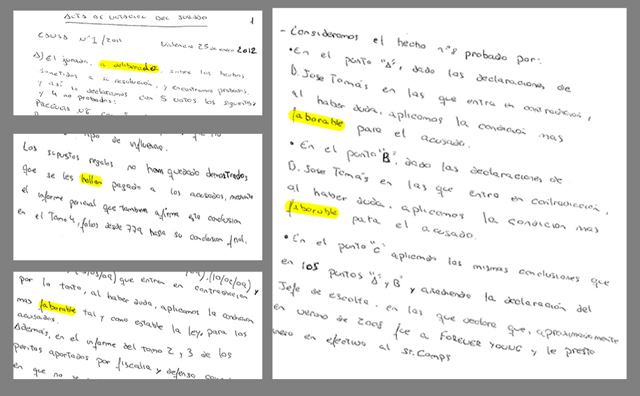 ACTA DE VOTACIÓN DEL JURADO
1
CAUSA Nº 1/2011
Valencia 25 de enero 2012
A) El jurado, a deliberado, sobre los hechos
sometidos a su resolución, y encontramos probados,
y así lo declaramos con 5 votos los siguientes
y 4 no probados:
de influencia.
Los supuestos regalos no han quedado demostrados,
que se les hallan pagado a los acusados, mediante
el informe pericial que también afirma esta conclusión
en el Tomo 4, folios desde 779 hasta su conclusión final.
que entran en contradicción y
por lo tanto, al haber duda, aplicamos la condición
mas faborable tal y como estable la ley, para los
acusados.
Además, en el informe del tomo 2 y 3 de los
peritos aportados por fiscalia y defensa
en que no se
- Consideramos el hecho nº8 probado por:
• En el punto "A", dado las declaraciones de
D. Jose Tomás en las que entra en contradicción,
al haber duda, aplicamos la condición mas
faborable para el acusado.
• En el punto "B", dado las declaraciones de
D. Jose Tomás en las que entra en contradicción,
al haber duda, aplicamos la condición mas
faborable para el acusado.
• En el punto "C" aplicando las mismas conclusiones que
en los puntos "A" y "B" y añadiendo la declaración del
Jefe de escolta, en las que declara que, aproximadamente
en verano de 2005 fue a FOREVER YOUNG y le presto
dinero en efectivo al Sr. Camps